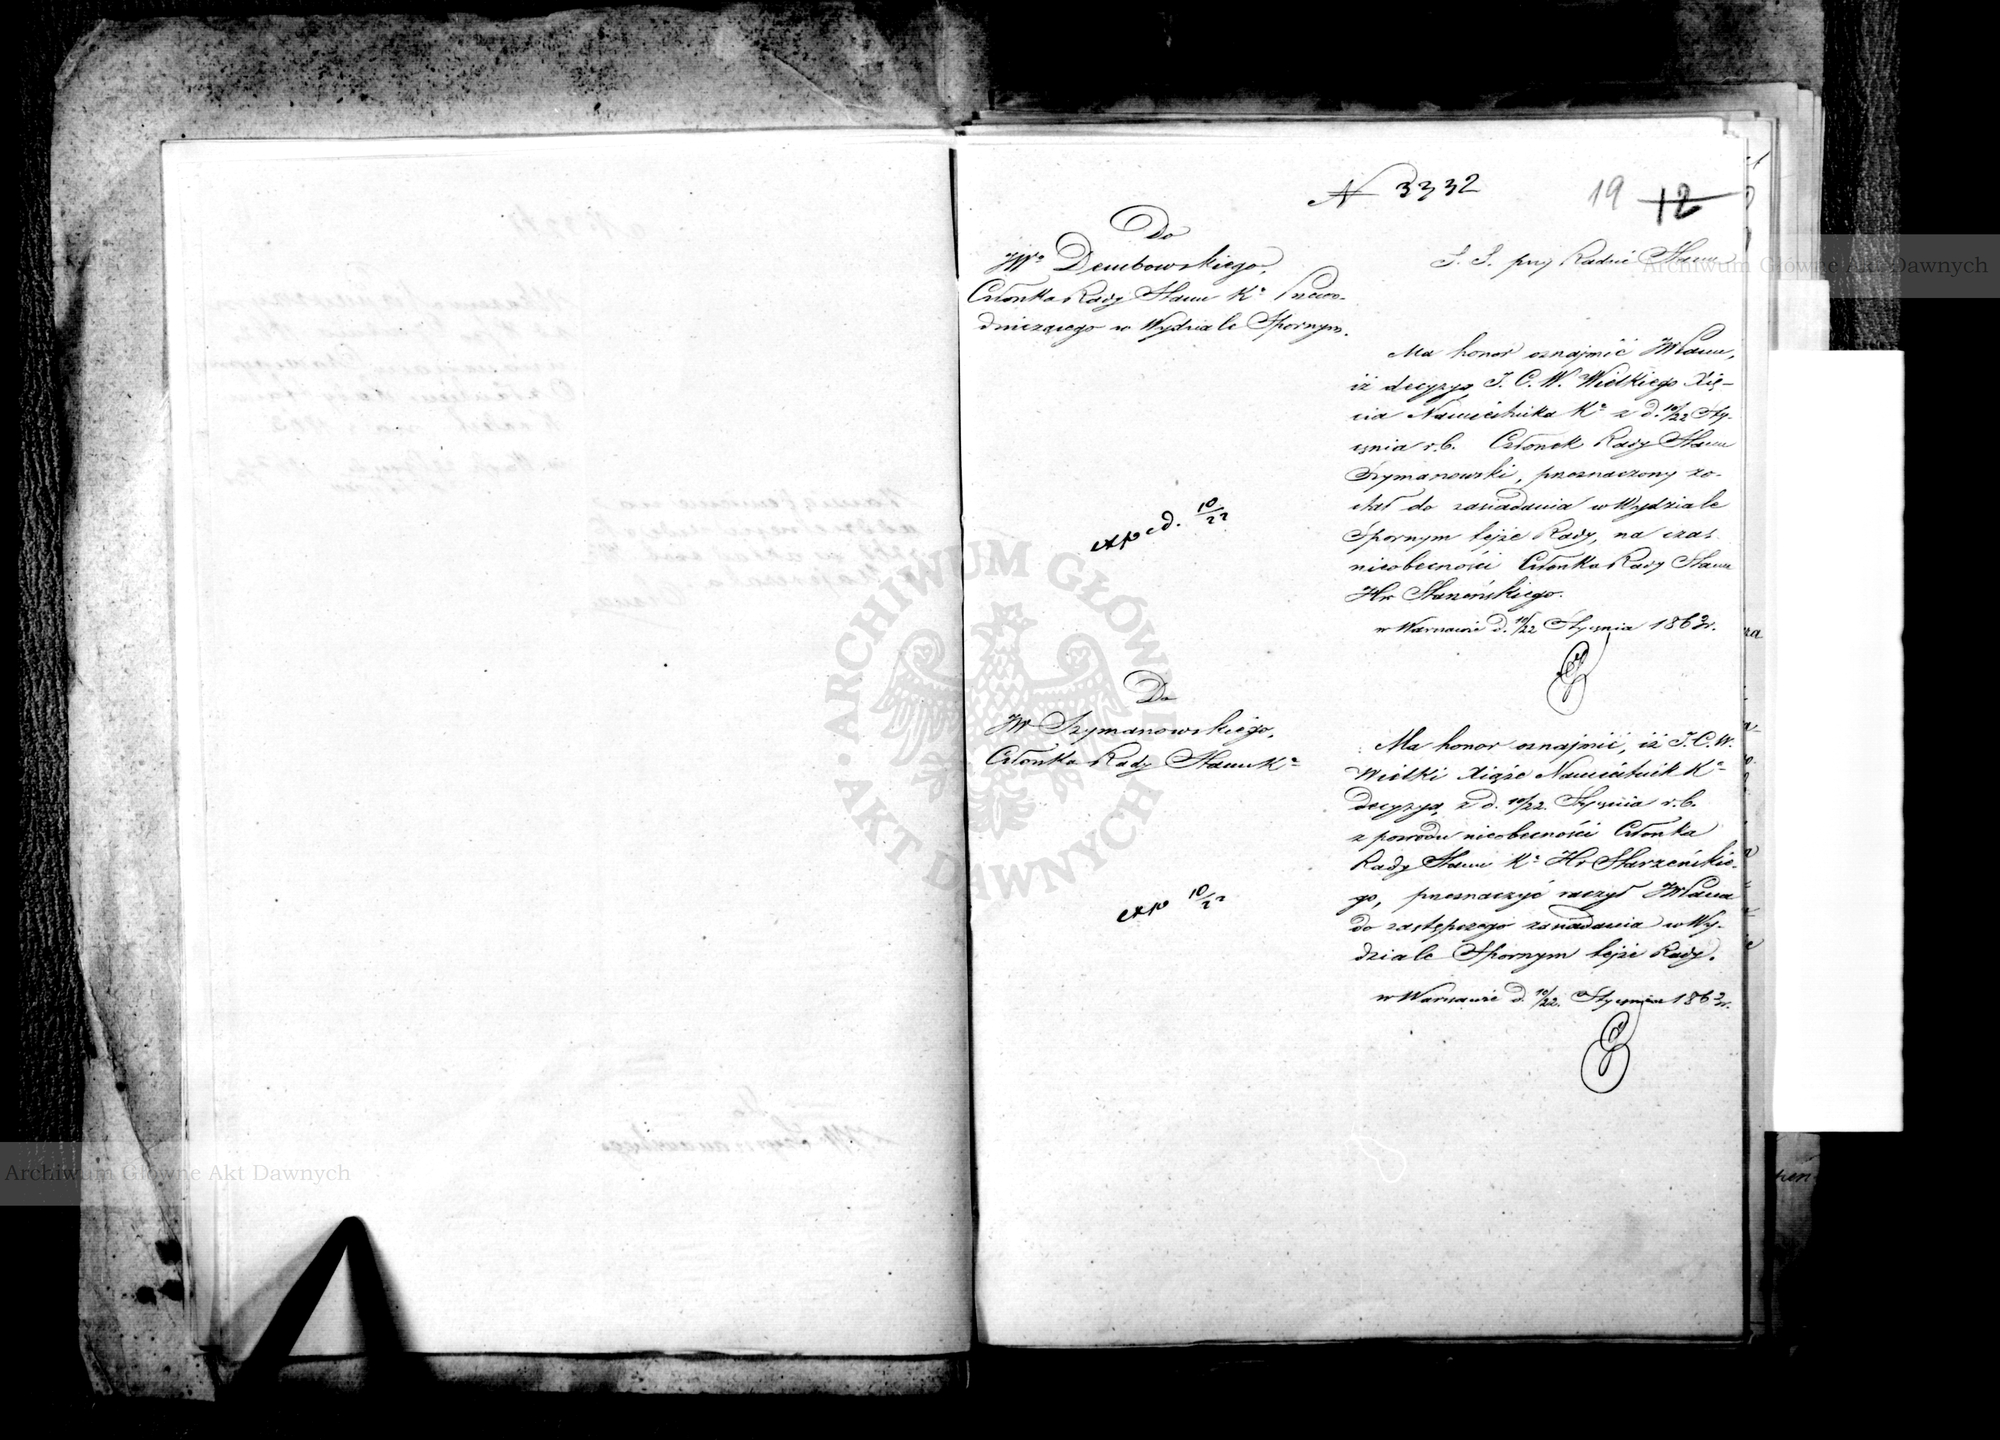 N 3332
19 12
Do
JWo Dembowskiego,
Członka Rady Stanu Ko Przewo-
dniczącego w Wydziale Spornym.
S. S. przy Radzie Stanu
Ma honor oznajmić JWPanu,
iż decyzyą J. C. W. Wielkiego Xię-
cia Namiestnika Ko z d. 10/22 Sty-
cznia r. b. Członek Rady Stanu
Szymanowski, przeznaczony zo-
stał do zasiadania w Wydziale
Spornym tejże Rady, na czas
nieobecności Członka Rady Stanu
Hr Starzeńskiego.
w Warszawie d. 10/22 Stycznia 1863 r.
exped. 10/22
Do
JW Szymanowskiego,
Członka Rady Stanu Ko
Ma honor oznajmić, iż J. C. W.
Wielki Xiąże Namiestnik Ko
decyzyą z d. 10/22. Stycznia r. b.
z powodu nieobecności Członka
Rady Stanu Ko Hr Starzeńskie-
go, przeznaczyć raczył JWPana
do zastępczego zasiadania w Wy-
dziale Spornym tejże Rady.
w Warszawie d. 10/22. Stycznia 1863 r.
exp 10/22
ARCHIWUM GŁÓWNE AKT DAWNYCH
Archiwum Główne Akt Dawnych
Archiwum Główne Akt Dawnych